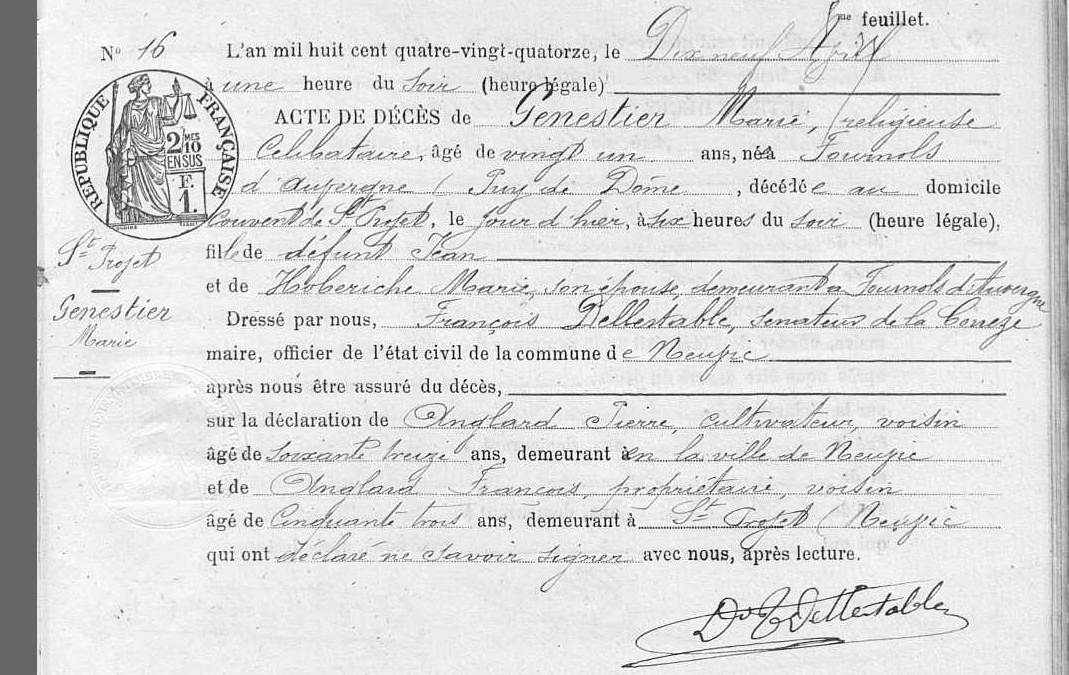 8me feuillet.
N° 16 L'an mil huit cent quatre-vingt-quatorze, le Dix neuf Avril
à une heure du soir (heure légale)
ACTE DE DÉCÈS de Genestier Marie, religieuse
Celibataire, âgé de vingt un ans, née à Fournols
d'Auvergne (Puy de Dôme, décédée au domicile
Couvent de St Projet, le jour d'hier, à six heures du soir (heure légale),
fille de défunt Jean
et de Hoberiche Marie, son épouse, demeurant à Fournols d'Auvergne
Dressé par nous, François Dellestable, senateur de la Correze
maire, officier de l'état civil de la commune de Neuvic
après nous être assuré du décès,
sur la déclaration de Anglard Pierre, cultivateur, voisin
âgé de soixante treize ans, demeurant en la ville de Neuvic
et de Anglard François, propriétaire, voisin
âgé de Cinquante trois ans, demeurant à St Projet (Neuvic
qui ont déclaré ne savoir signer avec nous, après lecture.
Dr F Dellestable
St Projet
Genestier
Marie
RÉPUBLIQUE FRANÇAISE
2/10 MES
EN SUS
F.
1.